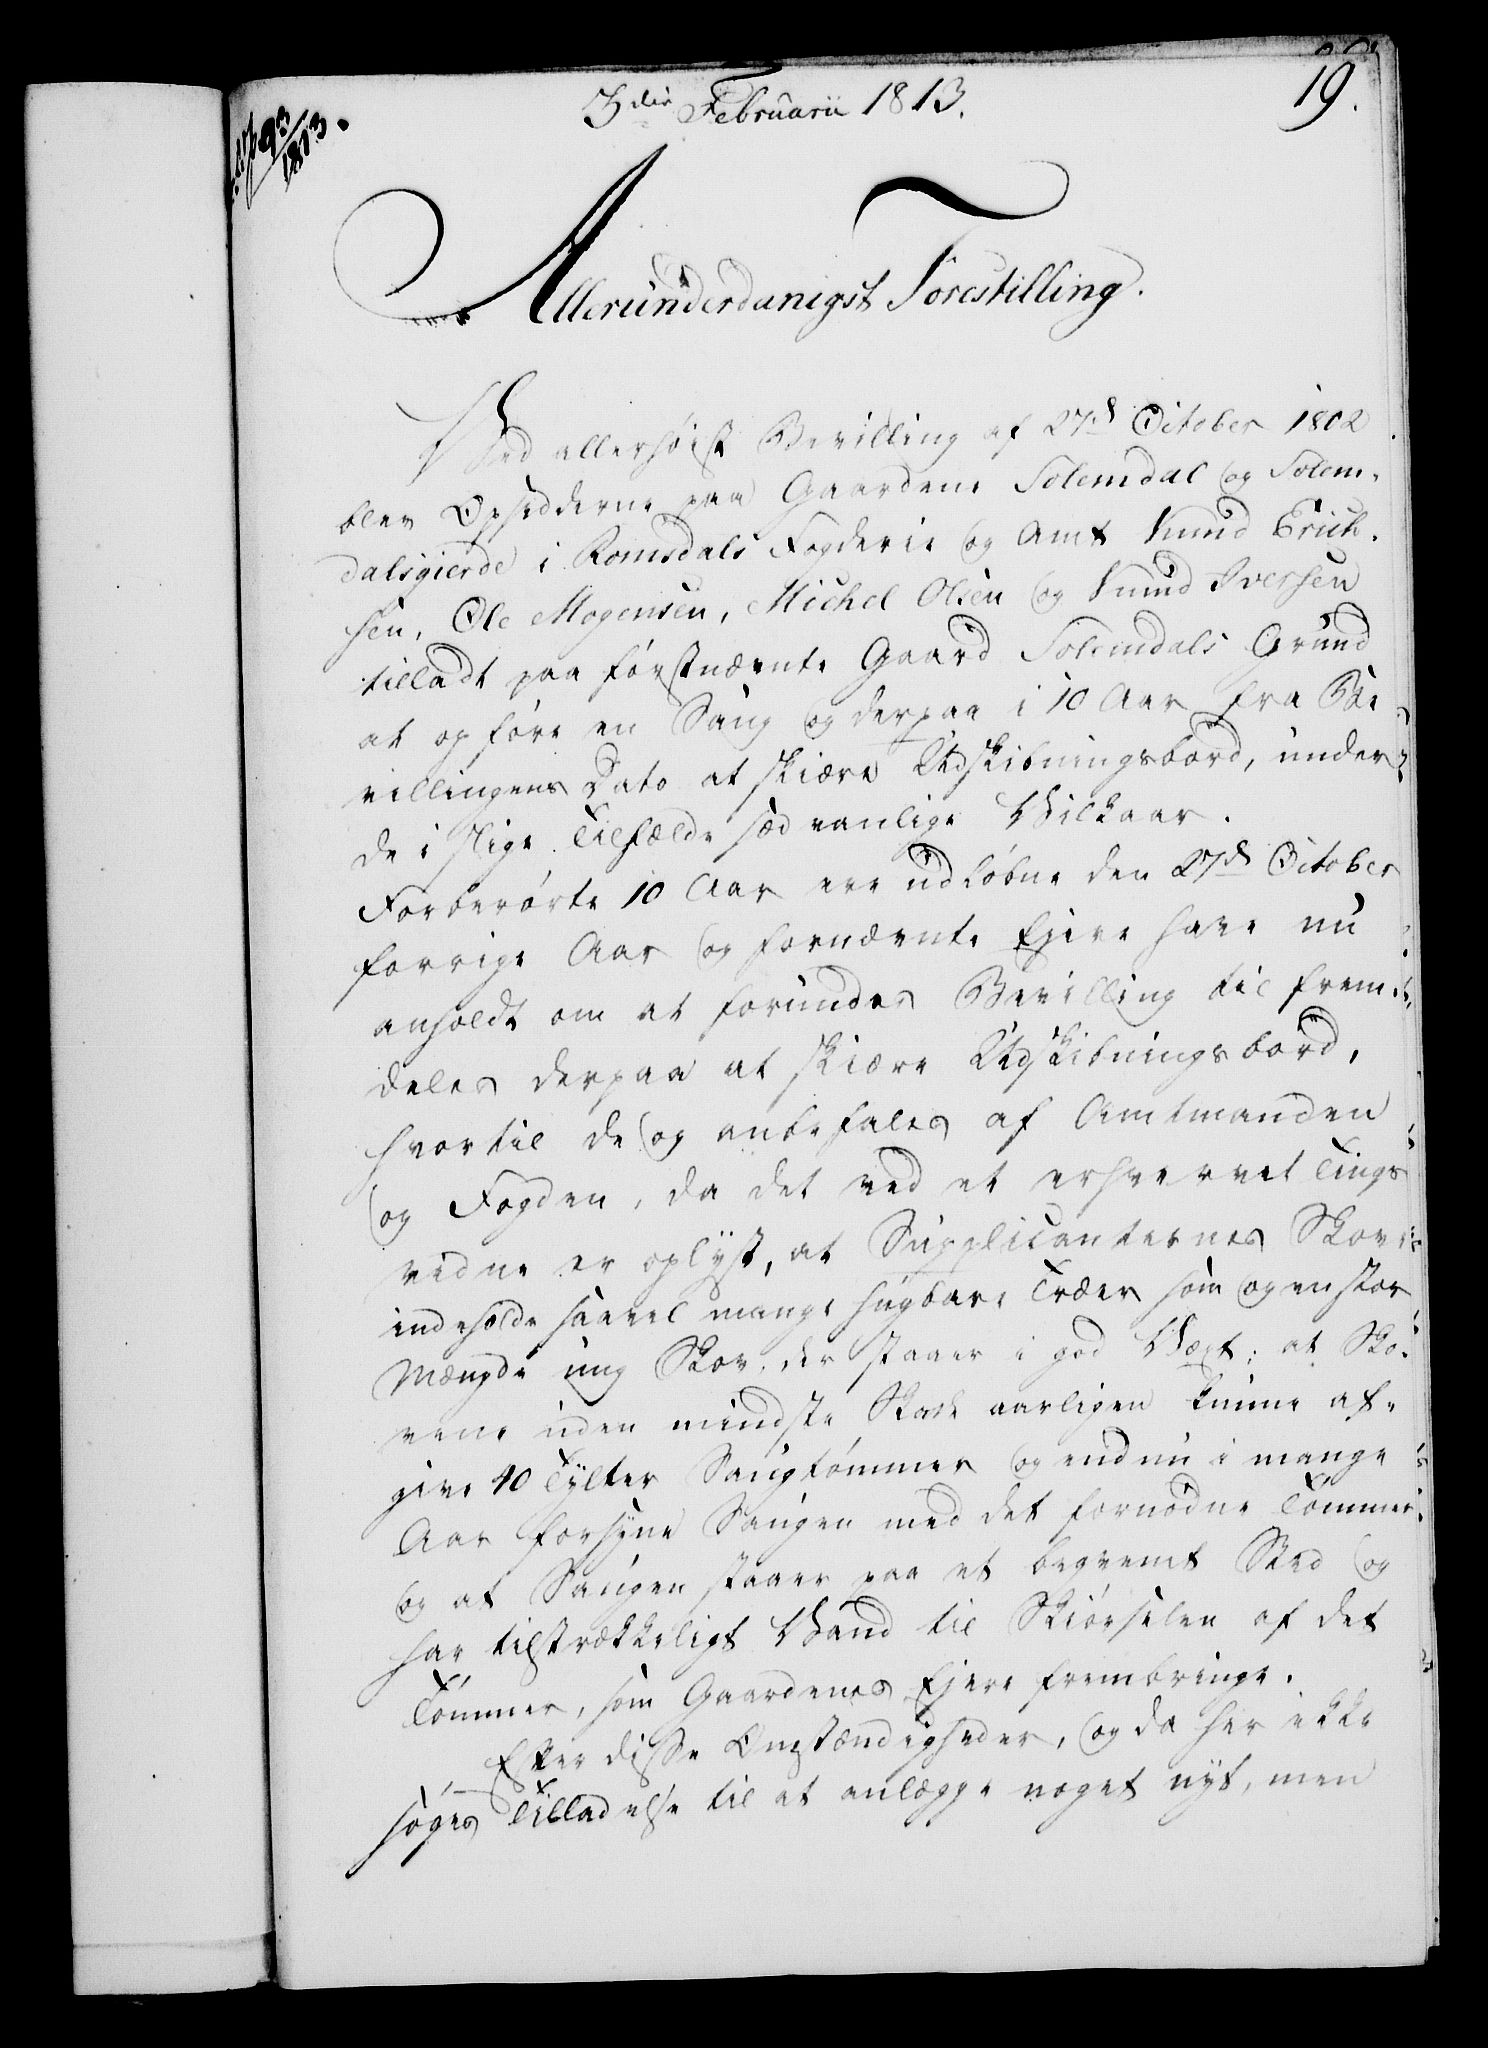 3die Februarii 1813.
19.
93/1813.
Allerunderdanigst Forestilling.
Ved allerhøist Bevilling af 27d October 1802
blev Opsidderne paa Gaardene Solemdal og Solem-
dalsgierde i Romsdals Fogderie og Amt Knud Erich-
sen, Ole Mogensen, Michel Olsen og Knud Iversen
tilladt paa förstnævnte Gaard Solemdals Grund
at opföre en Saug og derpaa i 10 Aar fra Be-
villingens Dato at skiære Udskibningsbord, under
de i slige Tilfælde sædvanlige Vilkaar.
Forberörte 10 Aar ere udløbne den 27d October
forrige Aar og fornævnte Ejere have nu
anholdt om at forundes Bevilling til frem-
deles derpaa at skiære Udskibningsbord,
hvortil de og anbefales af Amtmanden
og Fogden, da det ved et erhvervet Tings
vidne er oplÿst, at Supplicanternes Skove
indeholde saavel mange hugbare Træer som og en stor
Mængde ung Skov, der staaer i god Væxt; at Sko-
vene uden mindste Skade aarligen kunne af-
give 40 Tÿlter Saugtömmer og endnu i mange
Aar forsÿne Saugen med det fornödne Tömmer
og at Saugen staaer paa et beqvemt Sted og
har tilstrækkeligt Vand til Skiörselen af det
Tömmer, som Gaardenes Ejere frembringe.
Efter disse Omstændigheder, og da her ikke
søges Tilladelse til at anlægge noget nÿt, men